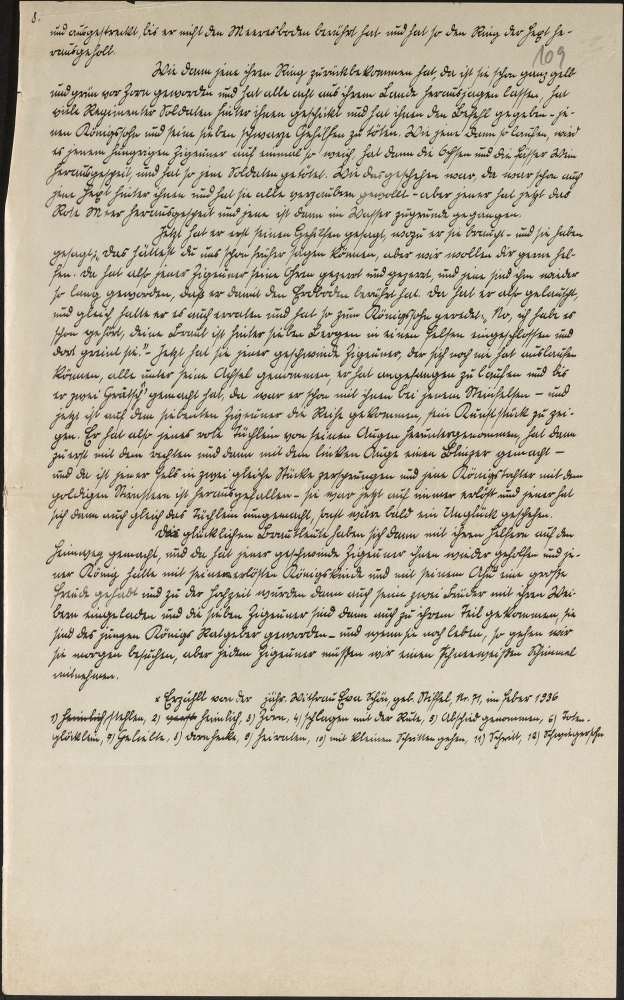 8.
109
und ausgestreckt, bis er nicht den Meeresboden berührt hat und hat so den Ring der Hexe he-
rausgeholt.
Wie dann jene ihren Ring zurückbekommen hat, da ist sie schon ganz gelb
und grün vor Zorn geworden und hat alle acht aus ihrem Lande herausjagen lassen, hat
viele Regimenter Soldaten hinter ihnen geschickt und hat ihnen den Befehl gegeben - je-
nen Königssohn und seine sieben schwarze Gehilfen zu töten. Wie jene dann so laufen, wird
es jenem hungrigen Zigeuner auf einmal so weich, hat dann die Ochsen und die Fässer Wein
herausgespeit, und hat so jene Soldaten getötet. Wie das geschehen war, da war schon auch
jene Hexe hinter ihnen und hat sie alle verzaubern gewollt - aber jener hat jetzt das
Rote Meer herausgespeit und jene ist dann im Wasser zugrunde gegangen.
Jetzt hat er erst seinen Gehilfen gesagt, wozu er sie braucht - und sie haben
gesagt: "Das hättest du uns schon früher sagen können, aber wir wollen dir gerne hel-
fen. Da hat also jener Zigeuner seine Ohren gezerrt und gezerrt, und jene sind ihm wieder
so lang geworden, daß er damit den Erdboden berührt hat. Da hat er also gelauscht,
und gleich hatte er es auch erraten und hat so zum Königssohn geredet: "No, ich habe es
schon gehört, deine Braut ist hinter sieben Bergen in einen Felsen eingeschlossen und
dort greint sie." - Jetzt hat sie jener geschwinde Zigeuner, der sich noch nie hat auslaufen
können, alle unter seine Achsel genommen, er hat angefangen zu laufen und bis
er zwei Grätsch gemacht hat, da war er schon mit ihnen bei jenem Steinfelsen - und
jetzt ist auf den siebenten Zigeuner die Reihe gekommen, sein Kunststück zu zei-
gen. Er hat also jenes rote Tüchlein von seinen Augen heruntergenommen, hat dann
zuerst mit dem rechten und dann mit dem linken Auge einen Blinzer gemacht -
und da ist jener Fels in zwei gleiche Stücke zersprungen und jene Königstochter mit dem
goldigen Stirnstern ist herausgefallen - sie war jetzt auf immer erlöst und jener hat
sich dann auch gleich das Tüchlein umgemacht, sonst wäre bald ein Unglück geschehen.
Die glücklichen Brautleute haben sich dann mit ihren Helfern auf den
Heimweg gemacht, und da hat jener geschwinde Zigeuner ihnen wieder geholfen und je-
ner König hatte mit seinem erlösten Königskinde und mit seinem eine große
Freude gehabt und zu der Hochzeit wurden dann auch seine zwei Brüder mit ihren Wei-
bern eingeladen und die sieben Zigeuner sind dann auch zu ihrem Teil gekommen, sie
sind des jungen Königs Ratgeber geworden - und wenn sie noch leben, so gehen wir
sie morgen besuchen, aber jedem Zigeuner müssen wir einen schneeweißen Schimmel
mitnehmen.
Erzählt von der jähr. Witfrau Eva Schön, geb. Nr. 71, im Feber 1936
1) stehlen, 2) heimlich, 3) Zorn, 4) schlagen mit der Rute, 5) Abschied genommen, 6) Toten-
glöcklein, 7) Geliebte, 8) Dornhecke, 9) heiraten, 10) mit kleinen Schritten gehen, 11) Schritt, 12) Schwiegersohn